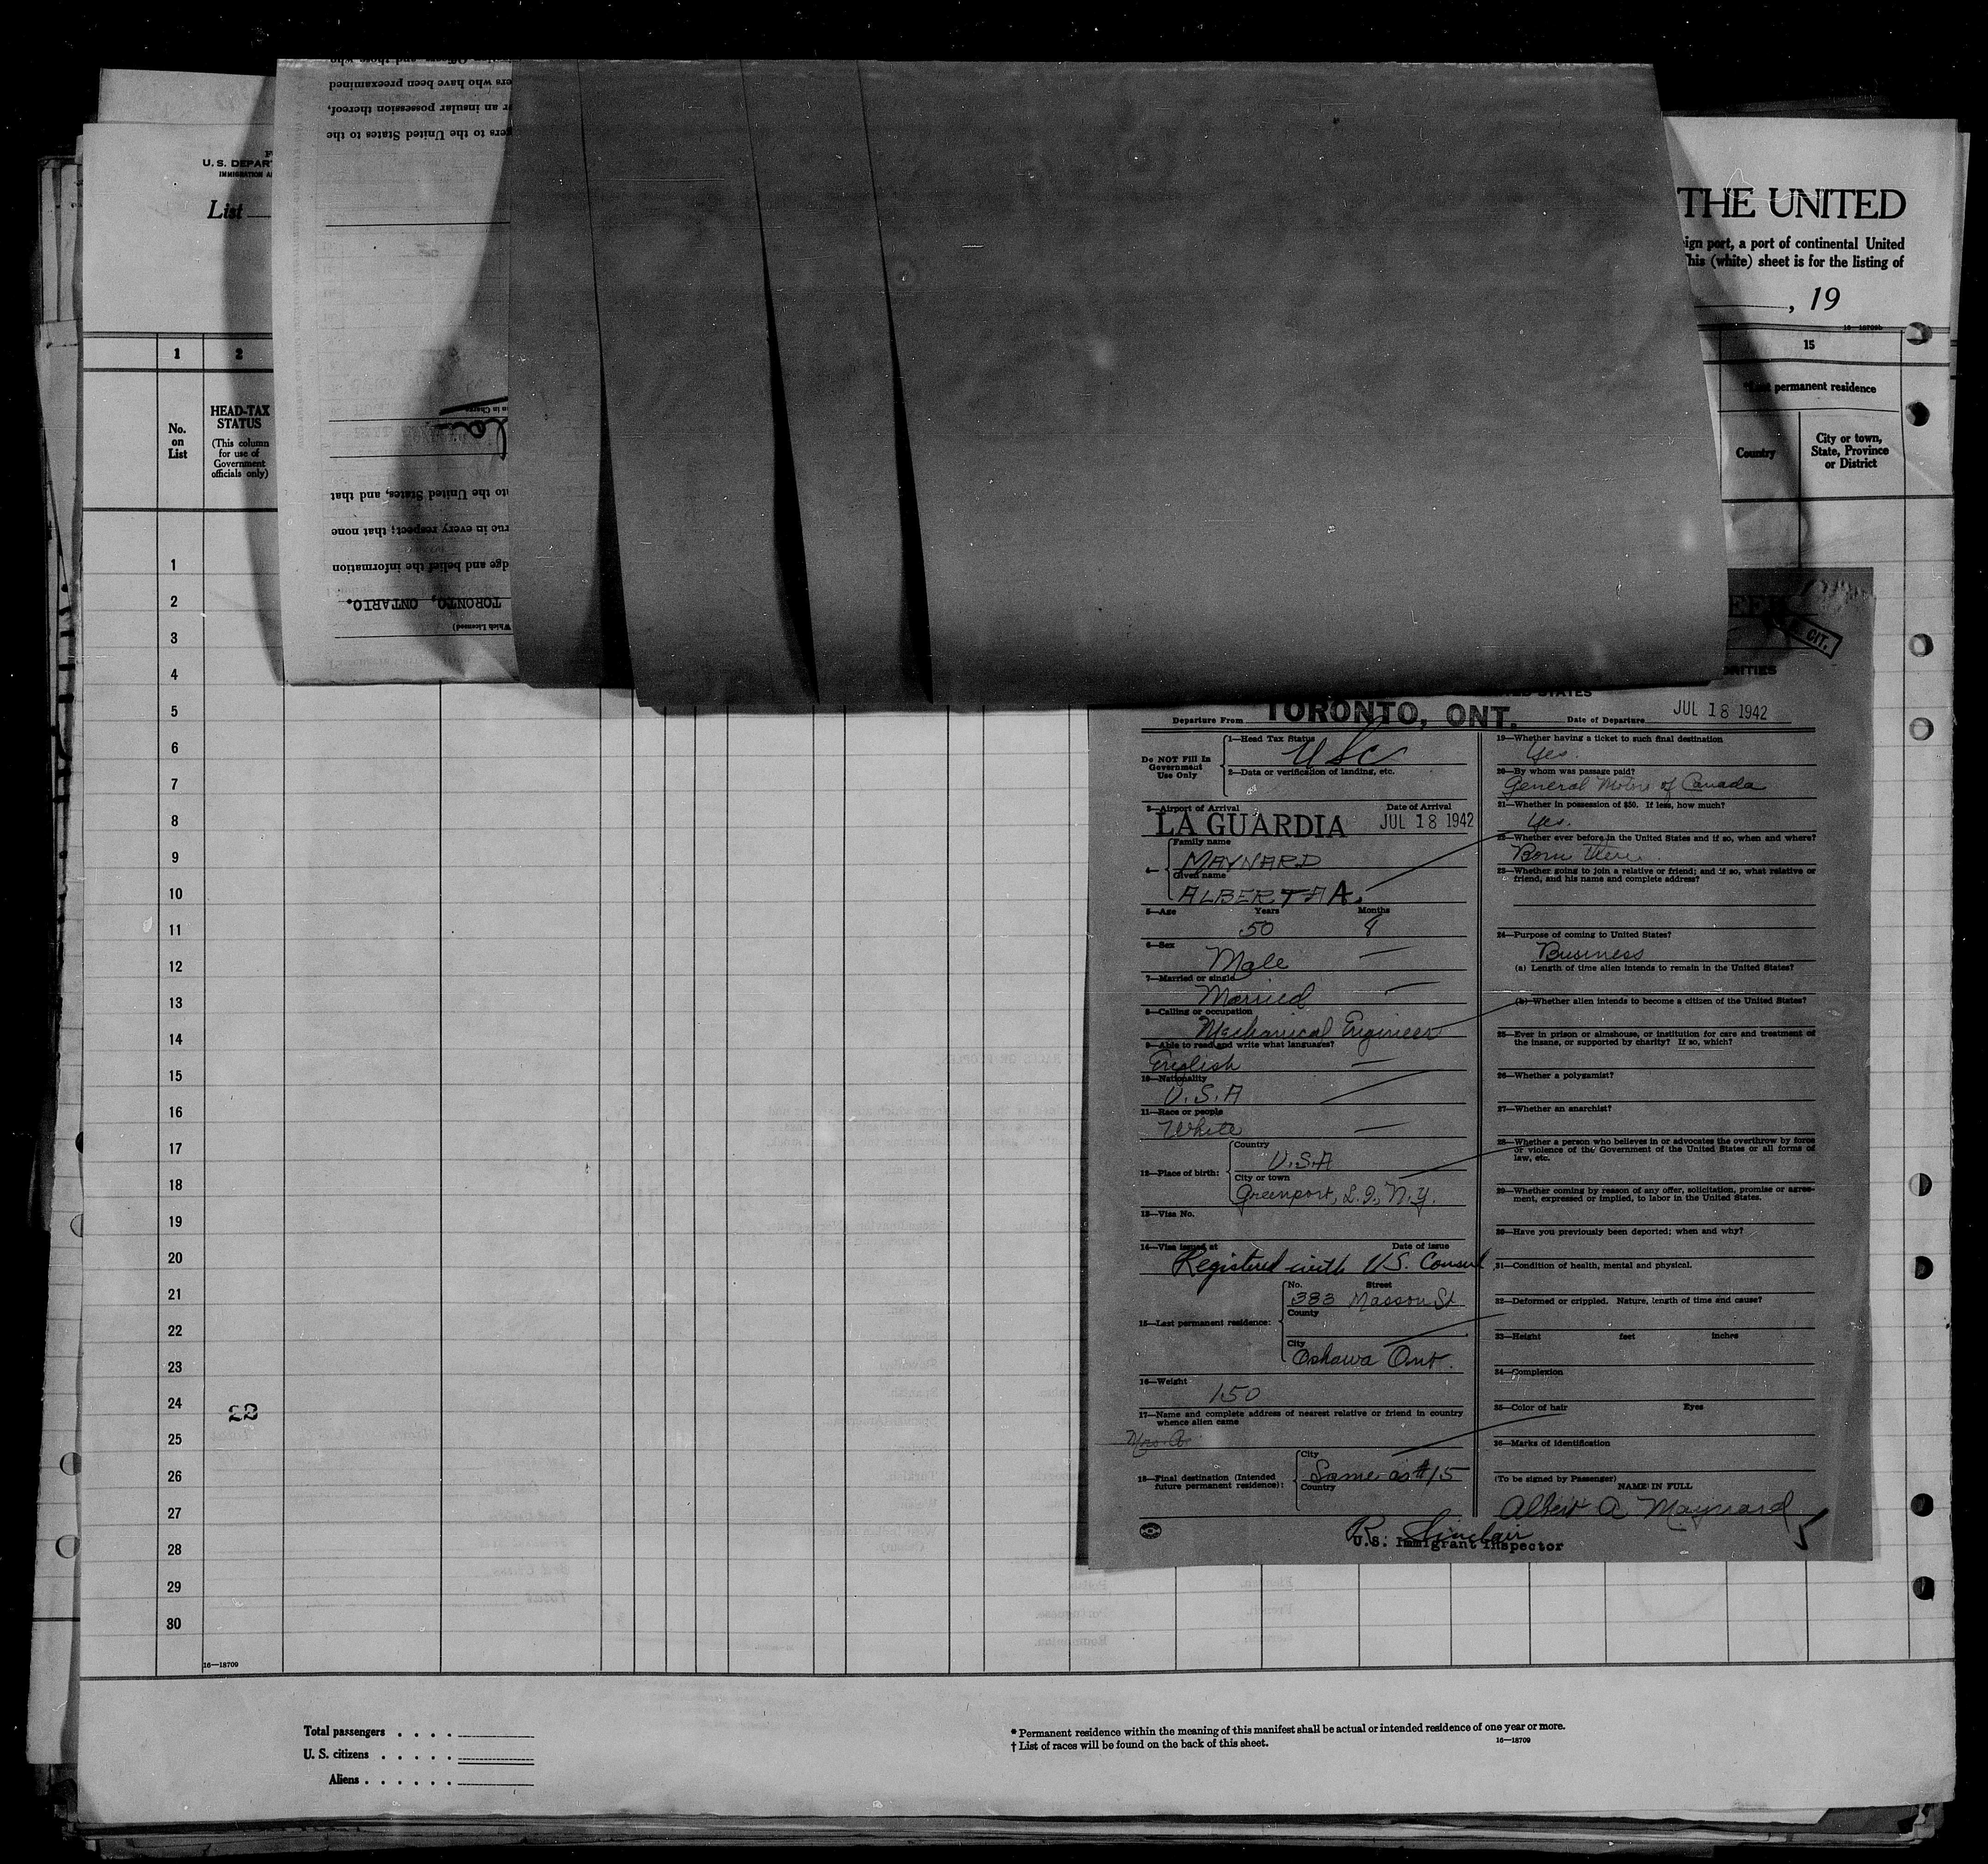 U. S. DEPAR
IMMIGRATION A
List
THE UNITED
eign port, a port of continental United
This (white) sheet is for the listing of
, 19
16—18709b
1
2
15
No.
on
List
HEAD-TAX
STATUS
(This column
for use of
Government
officials only)
permanent residence
Country
City or town,
State, Province
or District
ers who have been preexamined
or an insular possession thereof,
gers to the United States to the
n in Charge
to the United States, and that
rue in every respect; that none
dge and belief the information
TORONTO, ONTARIO.
Which Licensed)
1
2
3
4
5
6
7
8
9
10
11
12
13
14
15
16
17
18
19
20
21
22
23
24
22
25
26
27
28
29
30
16—18709
CIT.
RITIES
STATES
Departure From TORONTO, ONT.
Date of Departure JUL 18 1942
Do NOT Fill In
Government
Use Only
1—Head Tax Status
USC
2—Data or verification of landing, etc.
3—Airport of Arrival
Date of Arrival
LA GUARDIA JUL 18 1942
4—
Family name
MAYNARD
Given name
ALBERT A A.
5—Age Years Months
50 8
6—Sex
Male
7—Married or single
Married
8—Calling or occupation
Mechanical Engineer
9—Able to read and write what languages?
English
10—Nationality
U.S.A
11—Race or people
White
12—Place of birth:
Country
U.S.A
City or town
Greenport, L.I., N.Y.
13—Visa No.
14—Visa issued at Date of issue
Registered with U.S. Consul
15—Last permanent residence:
No. Street
383 Masson St
County
City
Oshawa Ont.
16—Weight
150
17—Name and complete address of nearest relative or friend in country
whence alien came
Mrs. A
18—Final destination (Intended
future permanent residence):
City
Same as #15
Country
19—Whether having a ticket to such final destination
Yes.
20—By whom was passage paid?
General Motors of Canada
21—Whether in possession of $50. If less, how much?
Yes.
22—Whether ever before in the United States and if so, when and where?
Born there
23—Whether going to join a relative or friend; and if so, what relative or
friend, and his name and complete address?
24—Purpose of coming to United States?
Business
(a) Length of time alien intends to remain in the United States?
(b) Whether alien intends to become a citizen of the United States?
25—Ever in prison or almshouse, or institution for care and treatment of
the insane, or supported by charity? If so, which?
26—Whether a polygamist?
27—Whether an anarchist?
28—Whether a person who believes in or advocates the overthrow by force
or violence of the Government of the United States or all forms of
law, etc.
29—Whether coming by reason of any offer, solicitation, promise or agree-
ment, expressed or implied, to labor in the United States.
30—Have you previously been deported; when and why?
31—Condition of health, mental and physical.
32—Deformed or crippled. Nature, length of time and cause?
33—Height feet inches
34—Complexion
35—Color of hair Eyes
36—Marks of identification
(To be signed by Passenger)
NAME IN FULL
Albert A Maynard
5
R. Sinclair
U.S. Immigrant Inspector
Total passengers . . . .
U. S. citizens . . . . .
Aliens . . . . . .
* Permanent residence within the meaning of this manifest shall be actual or intended residence of one year or more.
† List of races will be found on the back of this sheet.
16—18709